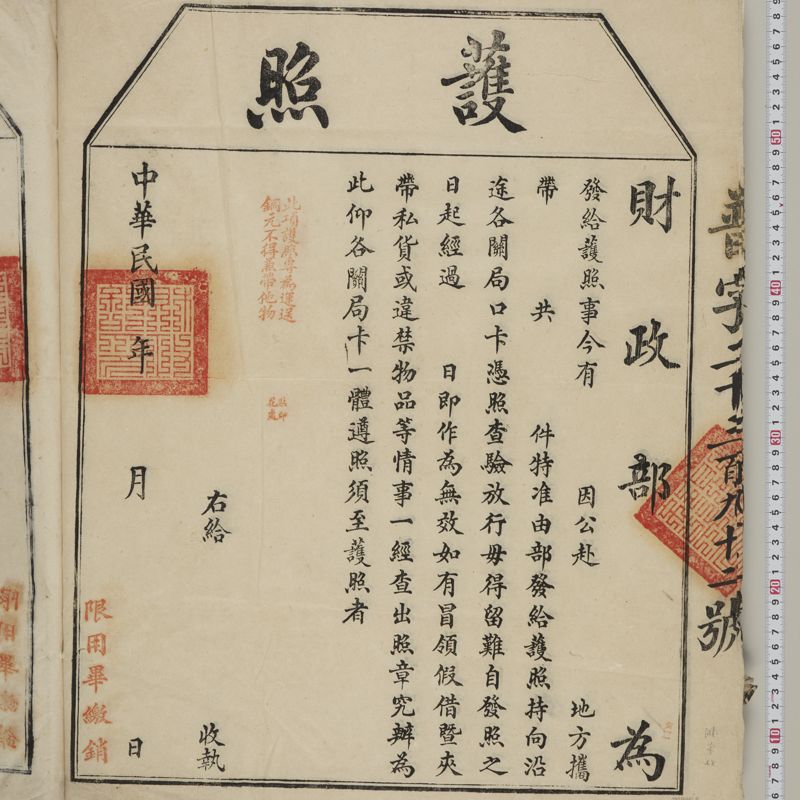 護照
財政部為
發給護照事今有 因公赴 地方攜
帶 共 件特准由部發給護照持向沿
途各關局口卡憑照查驗放行毋得留難自發照之
日起經過 日即作為無效如有冒領假借暨夾
帶私貨或違禁物品等情事一經查出照章究辦為
此仰各關局卡一體遵照須至護照者
此項護照專為運送
銅元不得兼帶他物
右給 收執
中華民國 年 月 日
限用畢繳銷
字二十三百九十二號